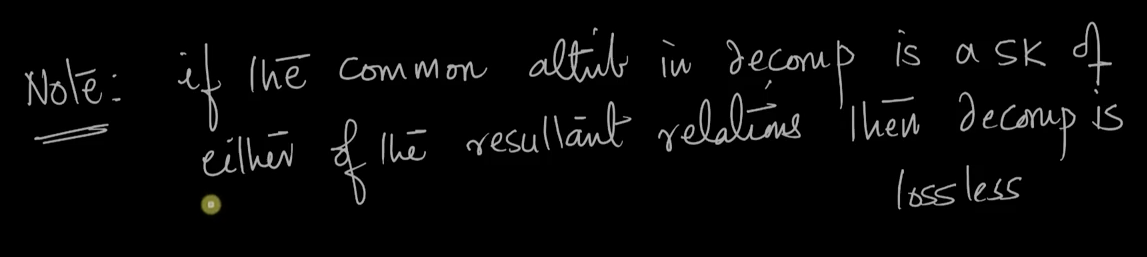 Note: if the common attrib in decomp is a SK of
either of the resultant relations then decomp is
lossless